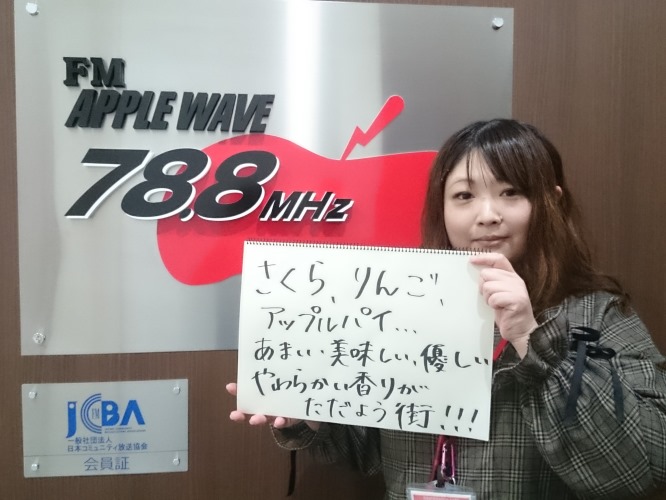 FM
APPLE WAVE
78.8 MHz
さくら、りんご、
アップルパイ...
あまい・美味しい、優しい
やわらかい香りが
ただよう街!!!
JCBA
一般社団法人
日本コミュニティ放送協会
会員証